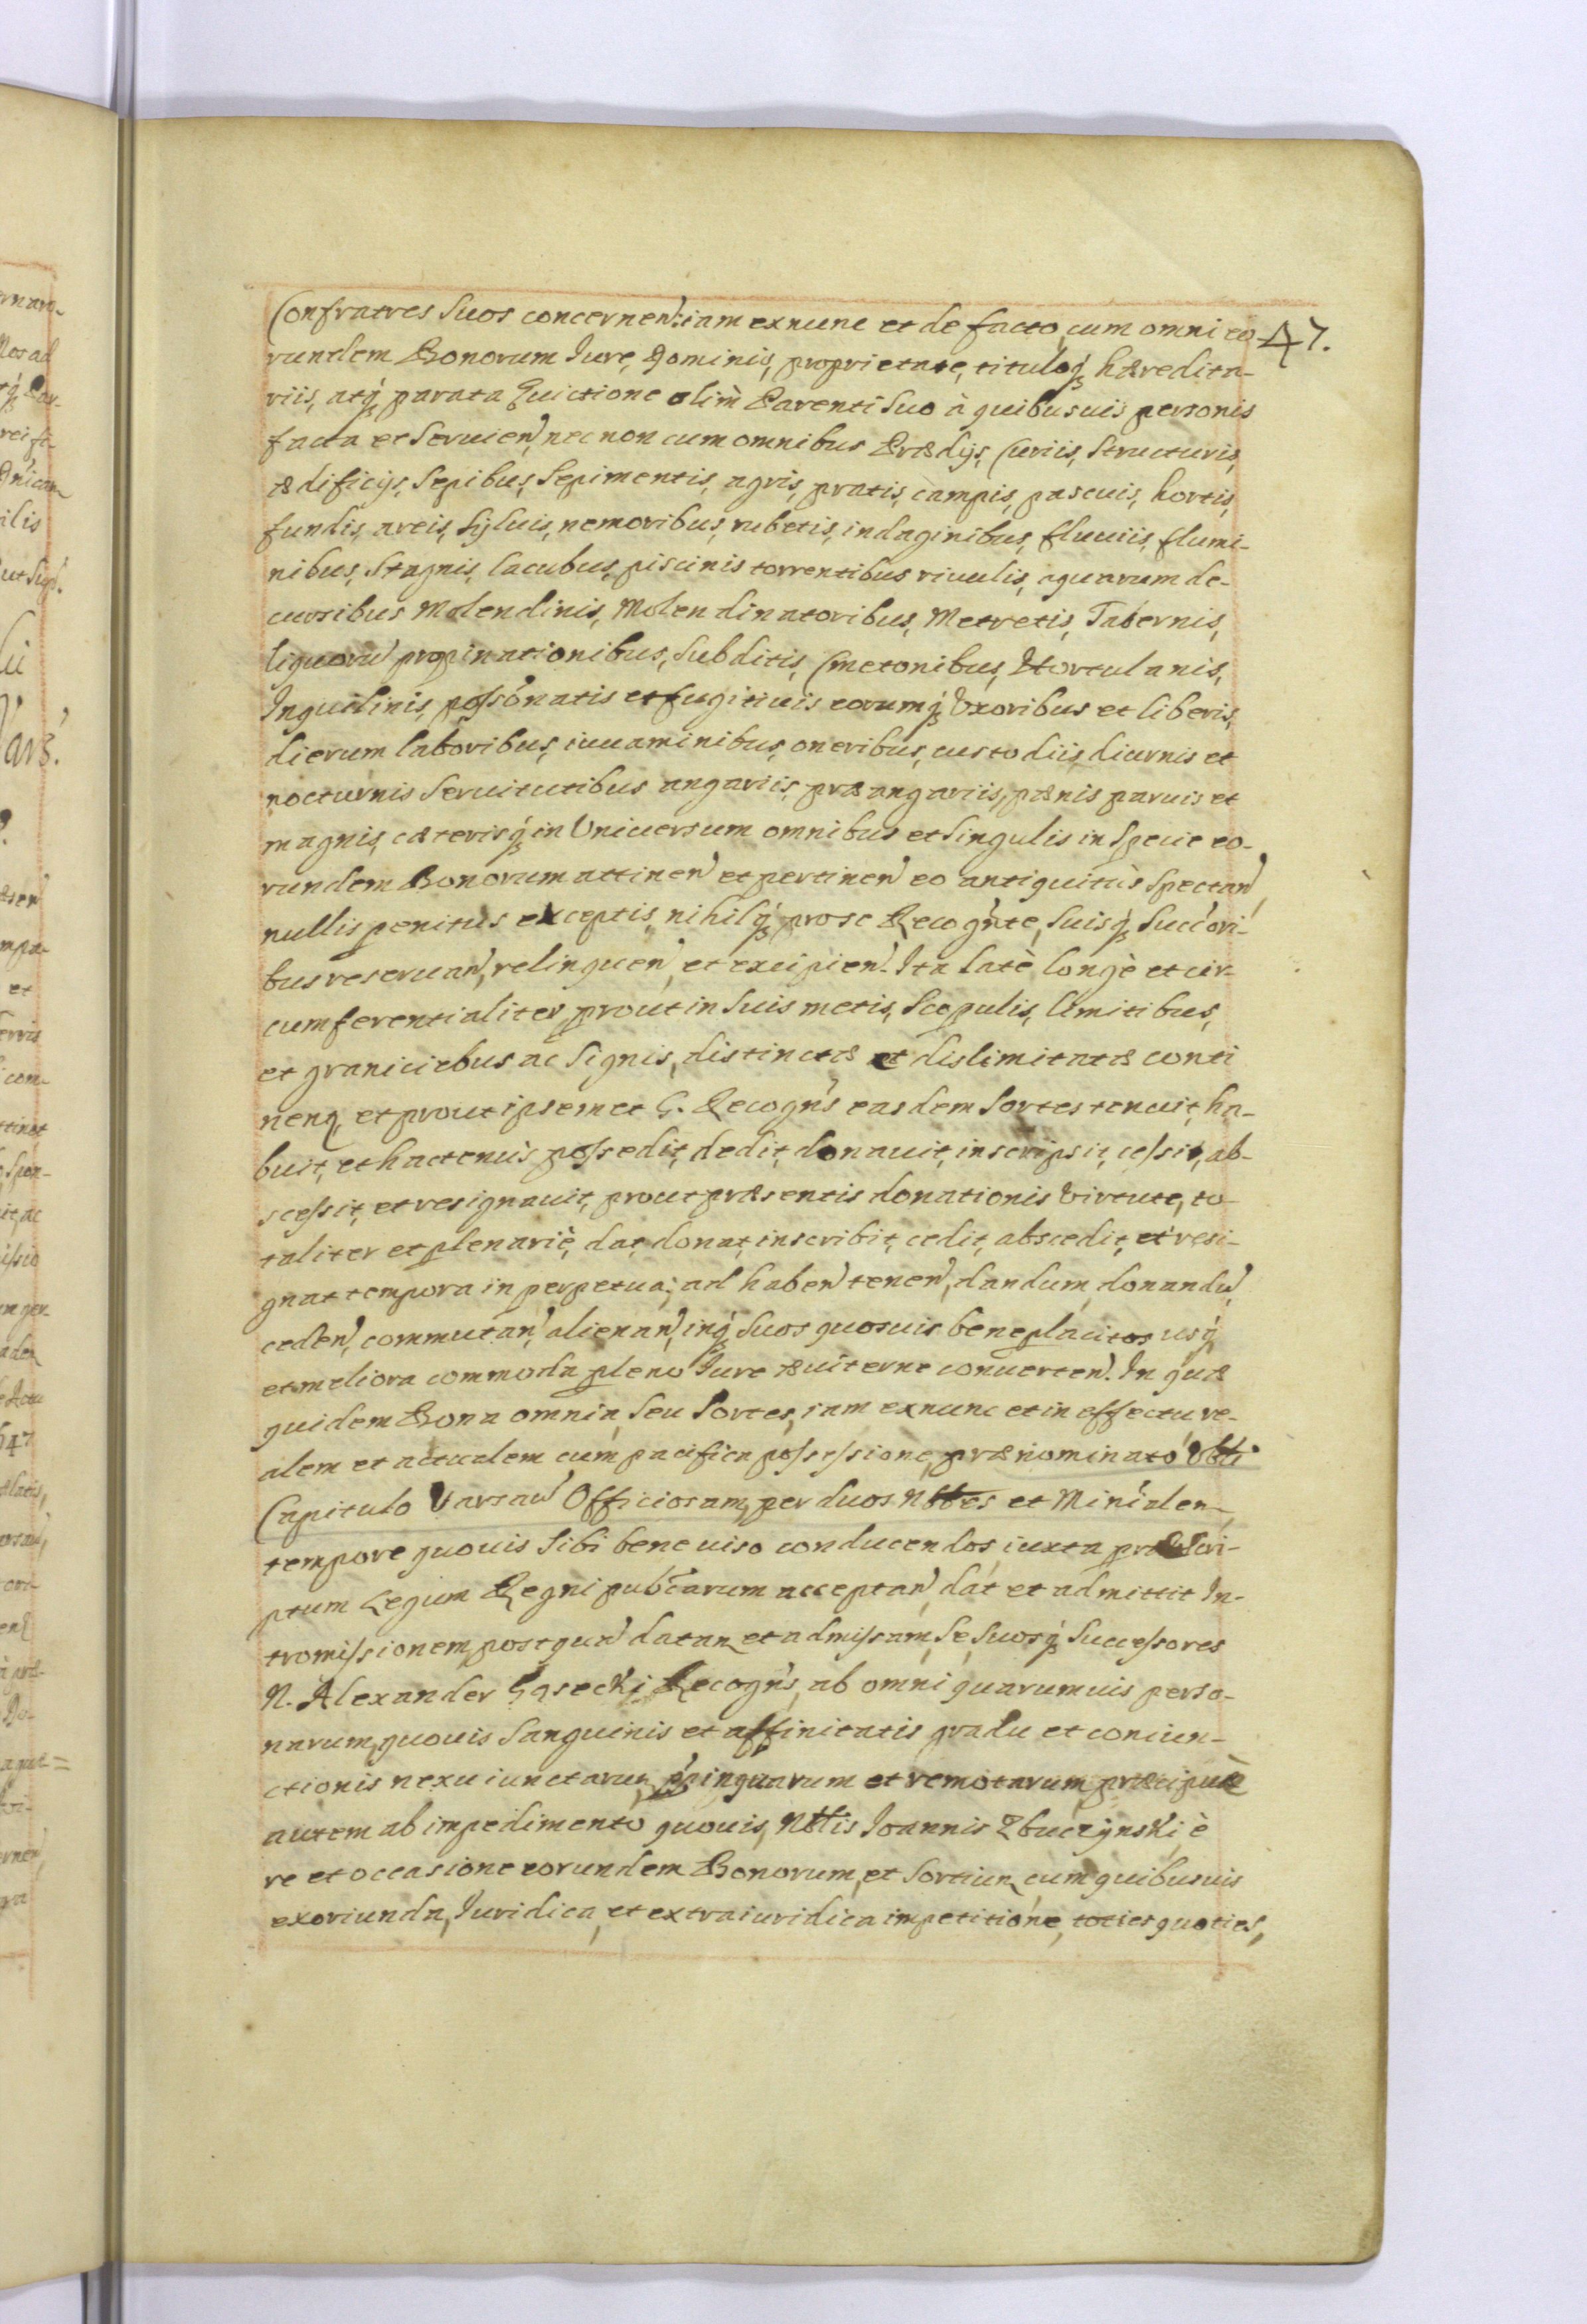 47.
Confratres Suos concernen: iam exnunc et de facto, cum omni eo-
rundem Bonorum Iure, Dominio, proprietate, tituloq́ hæredita-
riis, atq́ parata Euictione olim Parenti Suo à quibusuis personis
facta et Seruien, nec non cum omnibus Prædijs, Curiis, Structuris,
ædificijs, Sepibus, Sepimentis, agris, pratis, campis, pascuis, hortis,
fundis, areis, Syluis, nemoribus, rubetis, indaginibus, fluuiis, flumi-
nibus, Stagnis, lacubus, piscinis torrentibus riuulis, aquarum de-
cursibus Molendinis, Molendinatoribus, Metretis, Tabernis,
liquorū propinationibus, Subditis, Cmetonibus, Hortulanis,
Inquilinis, possōnatis et fugitiuis eorumq́ Vxoribus et liberis,
dierum laboribus, iuuaminibus, oneribus, custodiis diurnis et
nocturnis Seruitutibus angariis, præangariis, pænis paruis et
magnis, cæterisq́ in Vniuersum omnibus et Singulis in Specie eo-
rundem Bonorum attinen et pertinen eo antiquitùs Spectan,
nullis penitus exceptis, nihilq́ pro se Recognte, Suisq́ Succori-
bus reseruan, relinquen, et excipien. Ita latè, longè et cir-
cumferentialiter, prout in Suis metis, Scopulis, limitibus,
et graniciebus ac Signis, distinctæ et dislimitatæ conti
nenq, et prout ipsemet G. Recogns easdem Sortes tenuit, ha-
buit, et hactenus possedit, dedit, donauit, inscripsit, cessit, ab-
scessit, et resignauit, prout præsentis donationis Virtute, to-
taliter et plenariè, dat, donat, inscribit, cedit, abscedit, et resi-
gnat tempora in perpetua; ad haben tenen, dandum, donandū,
ceden, commutan, alienan, inq́ Suos quosuis beneplacitos usq́
et meliora commoda pleno Iure æuiterne conuerten. In quæ
quidem Bona omnia, Seu Sortes, iam exnunc et in effectu re-
alem et actualem cum pacifica possessione, prænominato Vbli
Capitulo Varsau Officiosam, per duos Nbles et Minialem,
tempore quouis Sibi bene uiso conducendos, iuxta præscri-
ptum Legum Regni pubcarum acceptan, dat et admittit In-
tromissionem, post quā datam et admissam, Se, Suosq́ Successores
N. Alexander Gąsecki Recogns, ab omni quarumuis perso-
narum, quouis Sanguinis et affinitatis gradu et coniun-
ctionis nexu iunctarum, ppinquarum et remotarum, præcipuè
autem ab impedimento quouis, Nblis Ioannis Zbuczynski è
re et occasione eorundem Bonorum, et Sortium, cum quibusuis
exoriunda, Iuridica, et extraiuridica impetitione, toties quoties,